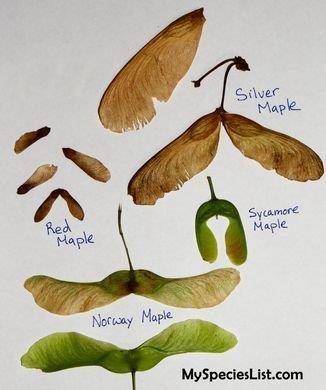 Silver
Maple
Red
Maple
Sycamore
Maple
Norway Maple
MySpeciesList.com